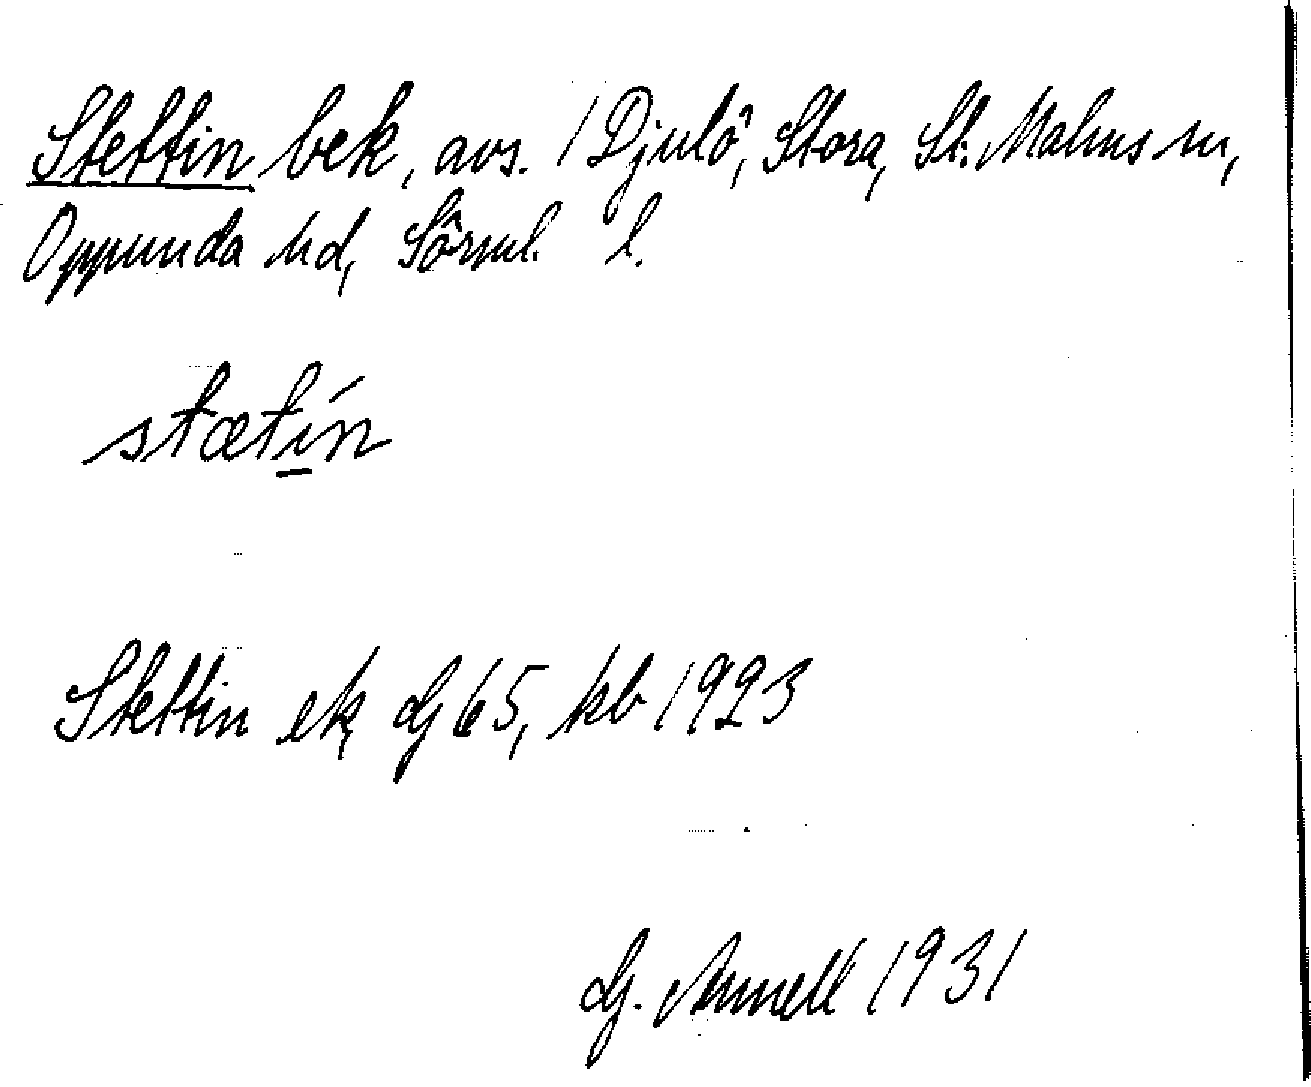 Stettin bek, avs. / Djulö, Stora, St. Malms sn,
Oppunda hd, Sörml. l.
stætín
Stettin ek G 65, kb 1923
G. Annell 1931